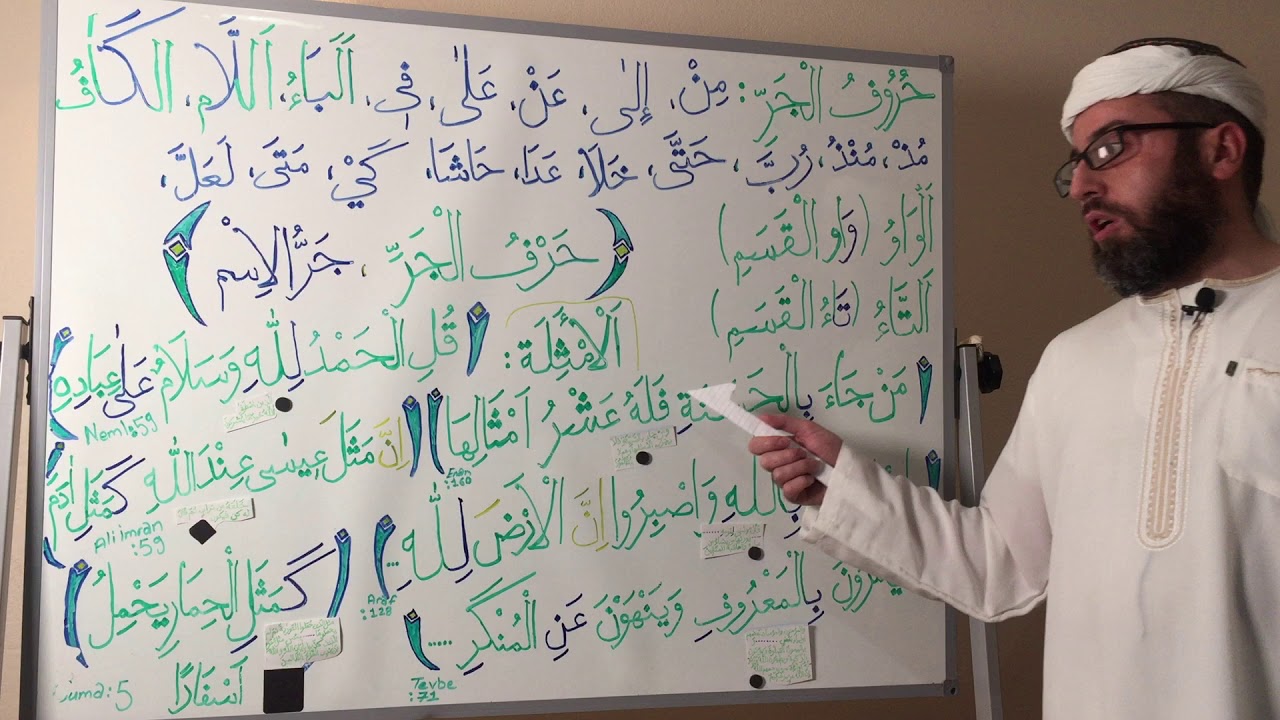 حُرُوفُ الْجَرِّ: مِنْ، إِلىٰ، عَنْ، عَلىٰ، فِى، اَلْبَاءُ، اَللَّام، الكَافُ
مُذْ، مُنْذُ، رُبَّ، حَتَّى، خَلَا، عَدَا، حَاشَا، كَيْ، مَتَى، لَعَلَّ،
اَلْوَاوُ (وَاو الْقَسَمِ)
اَلتَّاءُ (تَاءُ الْقَسَمِ)
(حَرْفُ الْجَرِّ، جَرُّ الِاسْمِ)
اَلْاَمْثِلَة:
قُلِ الْحَمْدُ لِلّٰهِ وَسَلَامٌ عَلىٰ عِبَادِهِ
Neml:59
مَنْ جَاءَ بِالْحَسَنَةِ فَلَهُ عَشْرُ اَمْثَالِهَا
Enam:160
اِنَّ مَثَلَ عِيسٰى عِنْدَ اللّٰهِ كَمَثَلِ اٰدَمَ
Ali imran:59
بِاللّٰهِ وَاصْبِرُوا اِنَّ الْاَرْضَ لِلّٰهِ...
Araf:128
بِالْمَعْرُوفِ وَيَنْهَوْنَ عَنِ الْمُنْكَرِ.....
Tevbe:71
كَمَثَلِ الْحِمَارِ يَحْمِلُ
اَسْفَارًا
uma:5